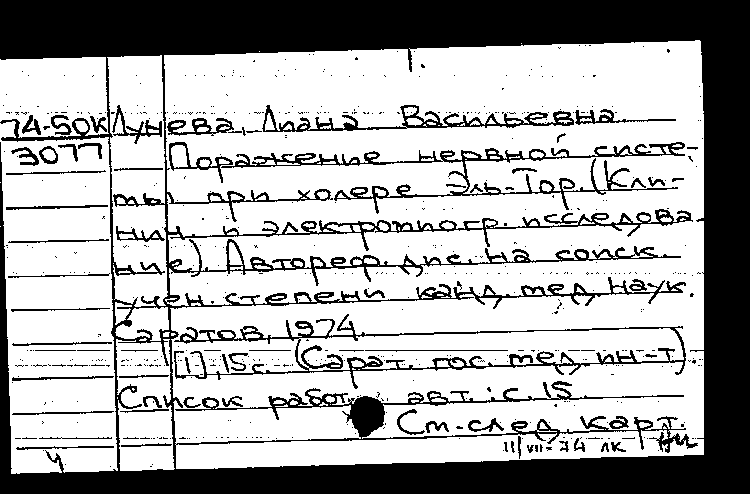 1.
74-50К Лунева, Лиана Васильевна
3077 Поражение нервной систе-
мы при холере Эль-Тор. (Кли-
нич. и электромиогр. исследова-
ние). Автореф. дис. на соиск.
учен. степени канд. мед. наук.
Саратов, 1974.
[1], 15с. (Сарат. гос. мед. ин-т).
Список работ авт.: с. 15
См. след. карт.
4 11/VII-74 ЛК